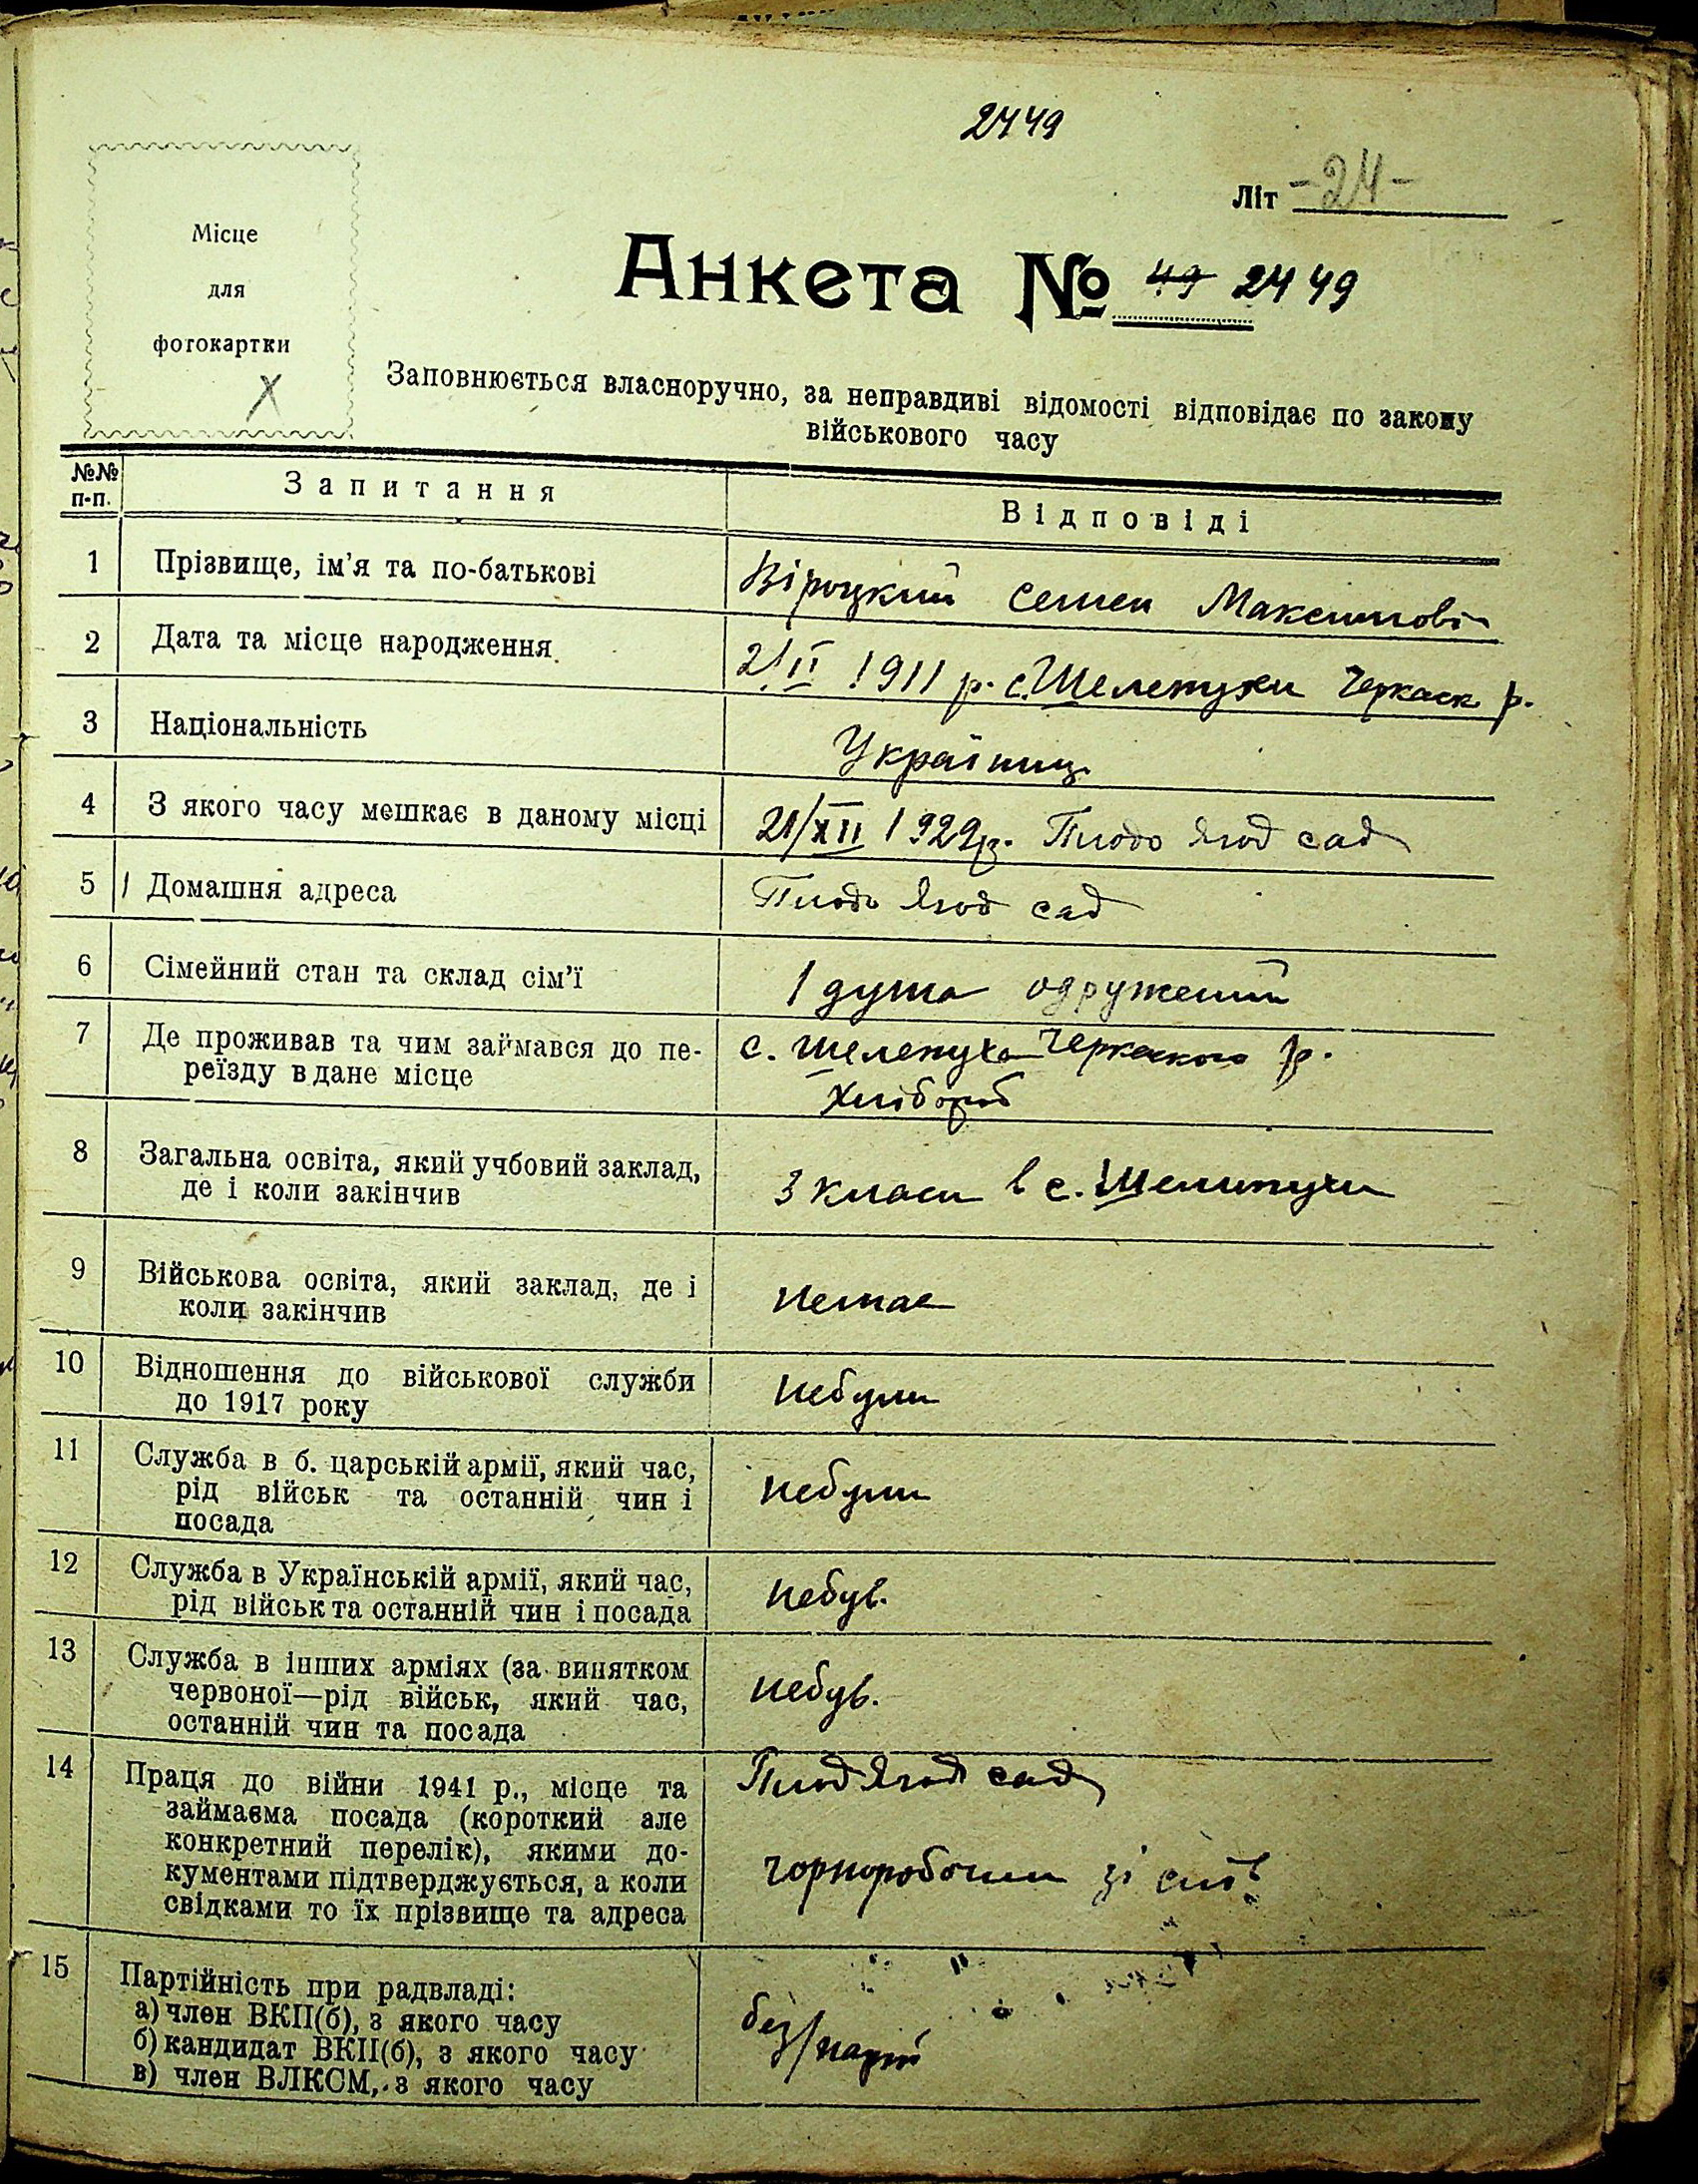 2449
Літ -24-
Місце
для
фотокартки
Х
Анкета № 49 2449
Заповнюється власноручно, за неправдиві відомості відповідає по закону
військового часу
№№ п-п. Запитання Відповіді
1 Прізвище, ім'я та по-батькові Віроцкий Семен Максимові
2 Дата та місце народження 2/II 1911 р. с. Шелепухи Черкаск р.
3 Національність Українец
4 З якого часу мешкає в даному місці 21/XII 1929р. Плодо Ягод сад
5 Домашня адреса Плодо Ягод сад
6 Сімейний стан та склад сім'ї 1 душа одружений
7 Де проживав та чим займався до пе- с. Шелепуха Черкаского р.
реїзду в дане місце хлібороб
8 Загальна освіта, який учбовий заклад,
де і коли закінчив 3 класи в с. Шелипухи
9 Військова освіта, який заклад, де і
коли закінчив немає
10 Відношення до військової служби
до 1917 року небули
11 Служба в б. царській армії, який час,
рід військ та останній чин і небули
посада
12 Служба в Українській армії, який час,
рід військ та останній чин і посада небув.
13 Служба в інших арміях (за винятком
червоної—рід військ, який час, небув.
останній чин та посада
14 Праця до війни 1941 р., місце та Плод Ягод сад
займаєма посада (короткий але
конкретний перелік), якими до-
кументами підтверджується, а коли чорноробочим зі
свідками то їх прізвище та адреса
15 Партійність при радвладі:
а) член ВКП(б), з якого часу без/парті
б) кандидат ВКП(б), з якого часу
в) член ВЛКСМ, з якого часу